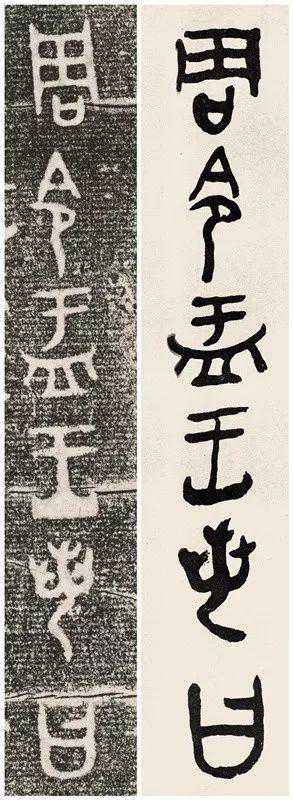 周令盂王若曰
周令盂王若曰